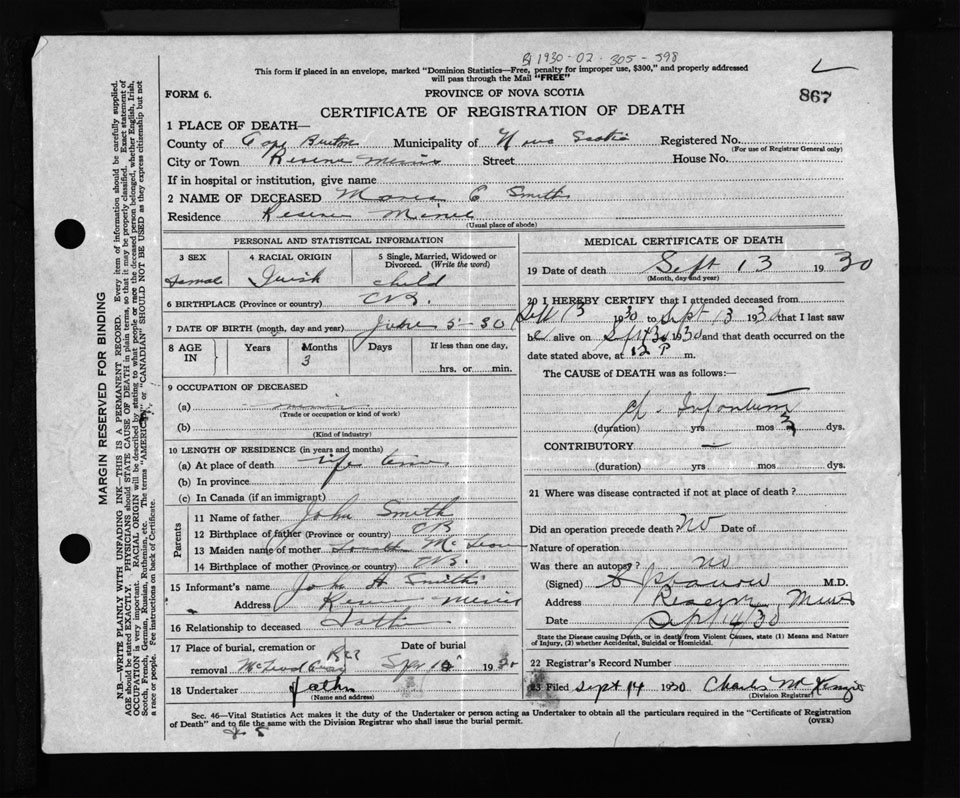 1930-02-305-598
This form if placed in an envelope, marked "Dominion Statistics—Free, penalty for improper use, $300," and properly addressed
will pass through the Mail "FREE"
FORM 6.
PROVINCE OF NOVA SCOTIA
867
CERTIFICATE OF REGISTRATION OF DEATH
1 PLACE OF DEATH—
County of Cape Breton Municipality of Nova Scotia Registered No.
(For use of Registrar General only)
City or Town Reserve Mines Street House No.
If in hospital or institution, give name
2 NAME OF DECEASED C Smith
Residence Reserve Mines
(Usual place of abode)
PERSONAL AND STATISTICAL INFORMATION
3 SEX
4 RACIAL ORIGIN
5 Single, Married, Widowed or
Divorced. (Write the word)
Female Irish child
6 BIRTHPLACE (Province or country) C.B.
7 DATE OF BIRTH (month, day and year) June 5-30
8 AGE
IN
Years
Months
3
Days
If less than one day,
hrs. or min.
9 OCCUPATION OF DECEASED
(a)
(Trade or occupation or kind of work)
(b)
(Kind of industry)
10 LENGTH OF RESIDENCE (in years and months)
(a) At place of death life time
(b) In province
(c) In Canada (if an immigrant)
Parents
11 Name of father John Smith
12 Birthplace of father (Province or country) CB
13 Maiden name of mother
14 Birthplace of mother (Province or country) CB.
15 Informant's name John H Smith
Address Reserve Mines
16 Relationship to deceased Father
17 Place of burial, cremation or
removal
Date of burial
1930
18 Undertaker father
(Name and address)
MEDICAL CERTIFICATE OF DEATH
19 Date of death Sept 13 1930
(Month, day and year)
20 I HEREBY CERTIFY that I attended deceased from
Sept 13 1930 to Sept 13 1930 that I last saw
her alive on Sept 13 1930 and that death occurred on the
date stated above, at 12 P m.
The CAUSE of DEATH was as follows:—
Ch. Infantum
(duration) yrs mos 3 dys.
CONTRIBUTORY —
(duration) yrs mos dys.
21 Where was disease contracted if not at place of death?
Did an operation precede death? No Date of
Nature of operation
Was there an autopsy? no
(Signed) M.D.
Address Reserve Mines
Date Sept 14/30
State the Disease causing Death, or in death from Violent Causes, state (1) Means and Nature
of Injury, (2) whether Accidental, Suicidal or Homicidal.
22 Registrar's Record Number
23 Filed Sept 14 1930 Charles McKenzie
(Division Registrar)
Sec. 46—Vital Statistics Act makes it the duty of the Undertaker or person acting as Undertaker to obtain all the particulars required in the "Certificate of Registration
of Death" and to file the same with the Division Registrar who shall issue the burial permit.
(OVER)
MARGIN RESERVED FOR BINDING
N.B.—WRITE PLAINLY WITH UNFADING INK—THIS IS A PERMANENT RECORD. Every item of information should be carefully supplied.
AGE should be stated EXACTLY. PHYSICIANS should STATE CAUSE OF DEATH in plain terms, so that it may be properly classified. Exact statement of
OCCUPATION is very important. RACIAL ORIGIN will be described by stating to what people or race the deceased person belonged, whether English, Irish,
Scotch, French, German, Russian, Ruthenian, etc. The terms "AMERICAN" or "CANADIAN" SHOULD NOT BE USED as they express citizenship but not
a race or people. Fee instructions on back of Certificate.